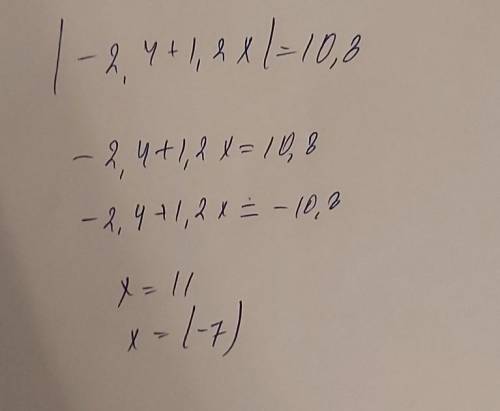 |-2,4+1,2x|=10,8
-2,4+1,2x=10,8
-2,4+1,2x=-10,8
x=11
x=(-7)